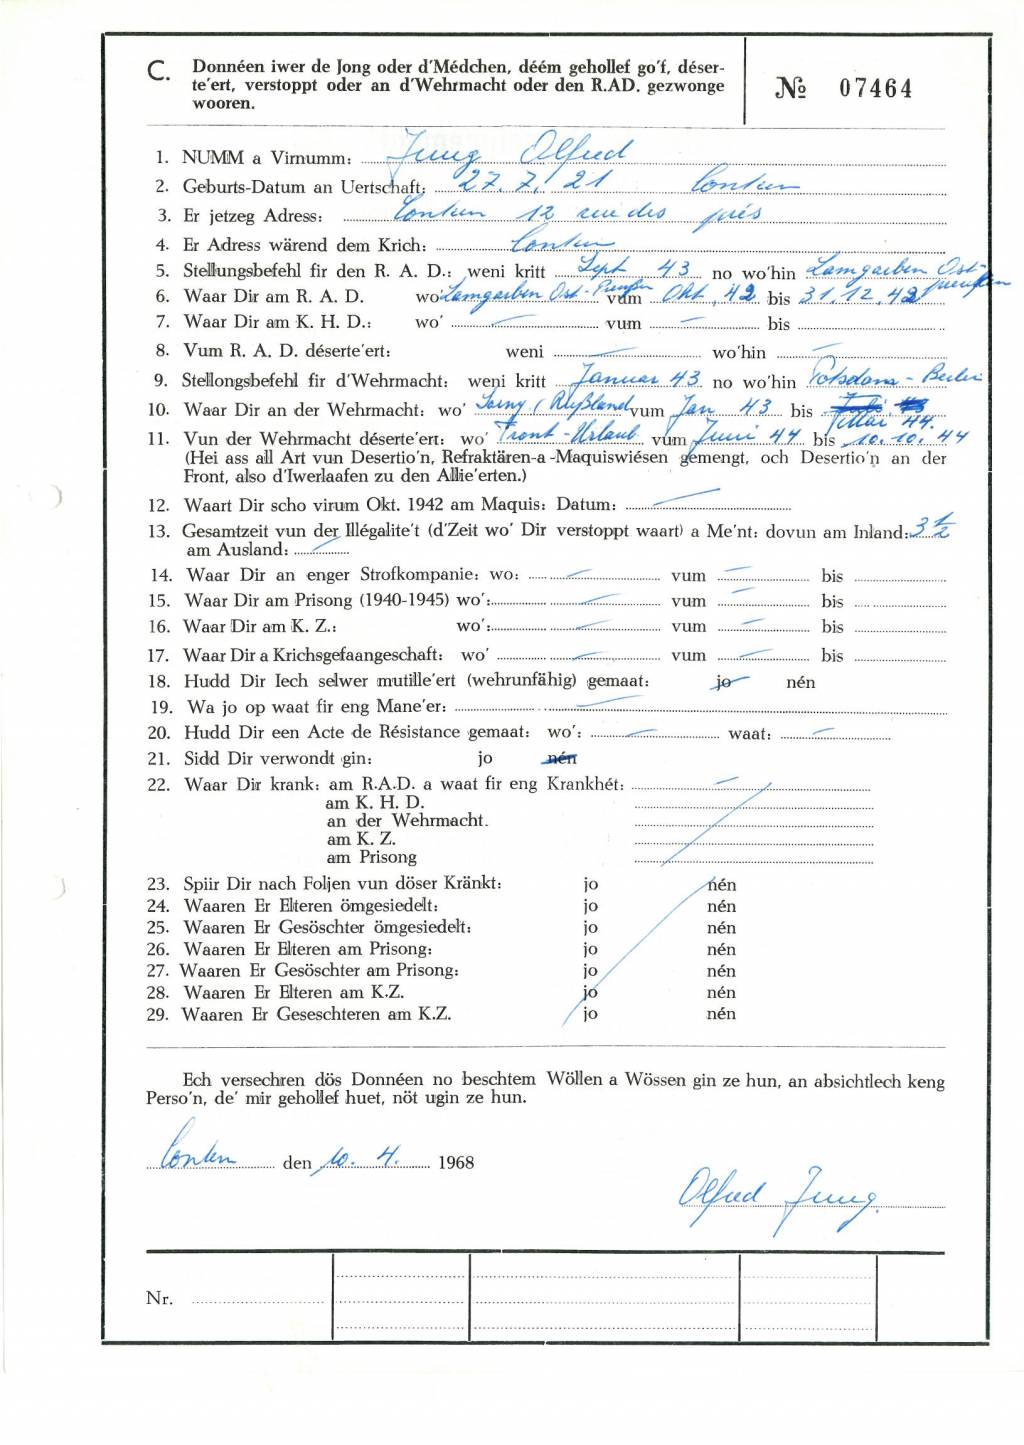 C. Donnéen iwer de Jong oder d'Médchen, déém gehollef go'f, déser-
te'ert, verstoppt oder an d'Wehrmacht oder den R.AD. gezwonge
wooren.
№ 07464
1. NUMM a Virnumm: Jung Alfred
2. Geburts-Datum an Uertschaft: 27.7.21 Contern
3. Er jetzeg Adress: Contern 12 rue des prés
4. Er Adress wärend dem Krich: Contern
5. Stellungsbefehl fir den R. A. D.: weni kritt Sept 43 no wo'hin Lamgarben Ost-
preußen
6. Waar Dir am R. A. D. wo' Lamgarben Ost-Preußen vum Okt, 42 bis 31.12.42
7. Waar Dir am K. H. D.: wo' — vum — bis
8. Vum R. A. D. déserte'ert: weni — wo'hin —
9. Stellongsbefehl fir d'Wehrmacht: weni kritt Januar 43 no wo'hin Potsdam - Berlin
10. Waar Dir an der Wehrmacht: wo' / Rußland vum Jan 43 bis Mai 44.
11. Vun der Wehrmacht déserte'ert: wo' Front-Urlaub vum Juni 44 bis 10.10.44
(Hei ass all Art vun Desertio'n, Refraktären-a-Maquiswiésen gemengt, och Desertio'n an der
Front, also d'Iwerlaafen zu den Allie'erten.)
12. Waart Dir scho virum Okt. 1942 am Maquis: Datum: —
13. Gesamtzeit vun der Illégalite't (d'Zeit wo' Dir verstoppt waart) a Me'nt: dovun am Inland: 3 1/2
am Ausland: —
14. Waar Dir an enger Strofkompanie: wo: — vum — bis
15. Waar Dir am Prisong (1940-1945) wo': — vum — bis
16. Waar Dir am K. Z.: wo': — vum — bis
17. Waar Dir a Krichsgefaangeschaft: wo' — vum — bis
18. Hudd Dir Iech selwer mutille'ert (wehrunfähig) gemaat: jo nén
19. Wa jo op waat fir eng Mane'er: —
20. Hudd Dir een Acte de Résistance gemaat: wo': — waat: —
21. Sidd Dir verwondt gin: jo nén
22. Waar Dir krank: am R.A.D. a waat fir eng Krankhét: —
am K. H. D.
an der Wehrmacht.
am K. Z.
am Prisong
23. Spiir Dir nach Foljen vun döser Kränkt: jo nén
24. Waaren Er Elteren ömgesiedelt: jo nén
25. Waaren Er Gesöschter ömgesiedelt: jo nén
26. Waaren Er Elteren am Prisong: jo nén
27. Waaren Er Gesöschter am Prisong: jo nén
28. Waaren Er Elteren am K.Z. jo nén
29. Waaren Er Geseschteren am K.Z. jo nén
Ech versechren dös Donnéen no beschtem Wöllen a Wössen gin ze hun, an absichtlech keng
Perso'n, de' mir gehollef huet, nöt ugin ze hun.
Contern den 10. 4. 1968
Alfred Jung.
Nr.